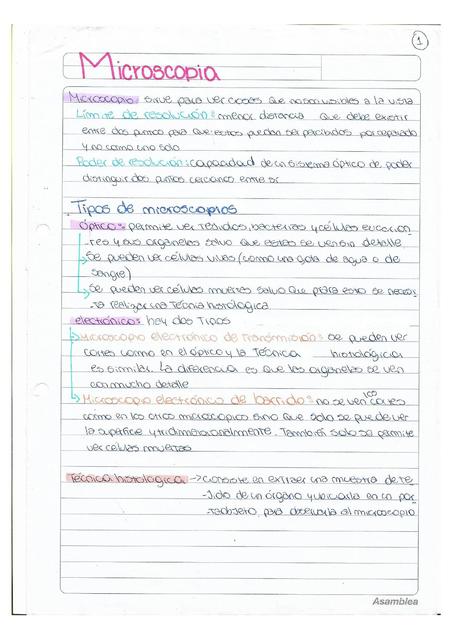 1
Microscopia
Microscopio: sirve para ver cosas que no son visibles a la vista
Límite de resolución: menor distancia que debe existir
entre dos puntos para que estos puedan ser percibidos por separado
y no como uno solo
Poder de resolución: capacidad de un sistema óptico de poder
distinguir dos puntos cercanos entre sí
Tipos de microscopios
óptico: permite ver tejidos, bacterias y células eucarion-
-tes y sus organelas salvo que estas se ven sin detalle
Se pueden ver células vivas (como una gota de agua o de
sangre)
Se pueden ver células muertas salvo que para esto se necesi-
-ta realizar una técnica histológica
electrónico: hay dos tipos
Microscopio electrónico de transmisión: se pueden ver
cortes como en el óptico y la técnica histológica
es similar. La diferencia es que las organelas se ven
con mucho detalle
Microscopio electrónico de barrido: no se ven cortes
como en los otros microscopios sino que solo se puede ver
la superficie y tridimensionalmente. También solo se permite
ver células muertas
Técnica histológica → consiste en extraer una muestra de te-
-jido de un órgano y ubicarla en un por-
-taobjeto, para observarla al microscopio
Asamblea